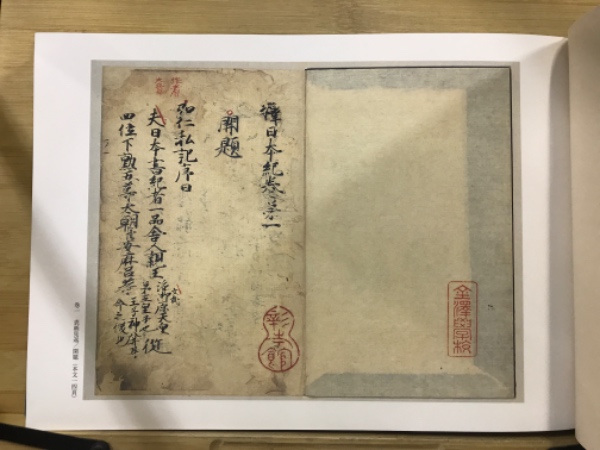 金澤學校
釋日本紀巻第一
開題
弘仁私記序曰
夫日本書紀者一品舎人親王
天皇
第五皇子也
從
四位下勲五等太朝臣安麻呂等
王子神八井
命之後也
彰考館
巻一　表紙見返・開題（本文一四頁）